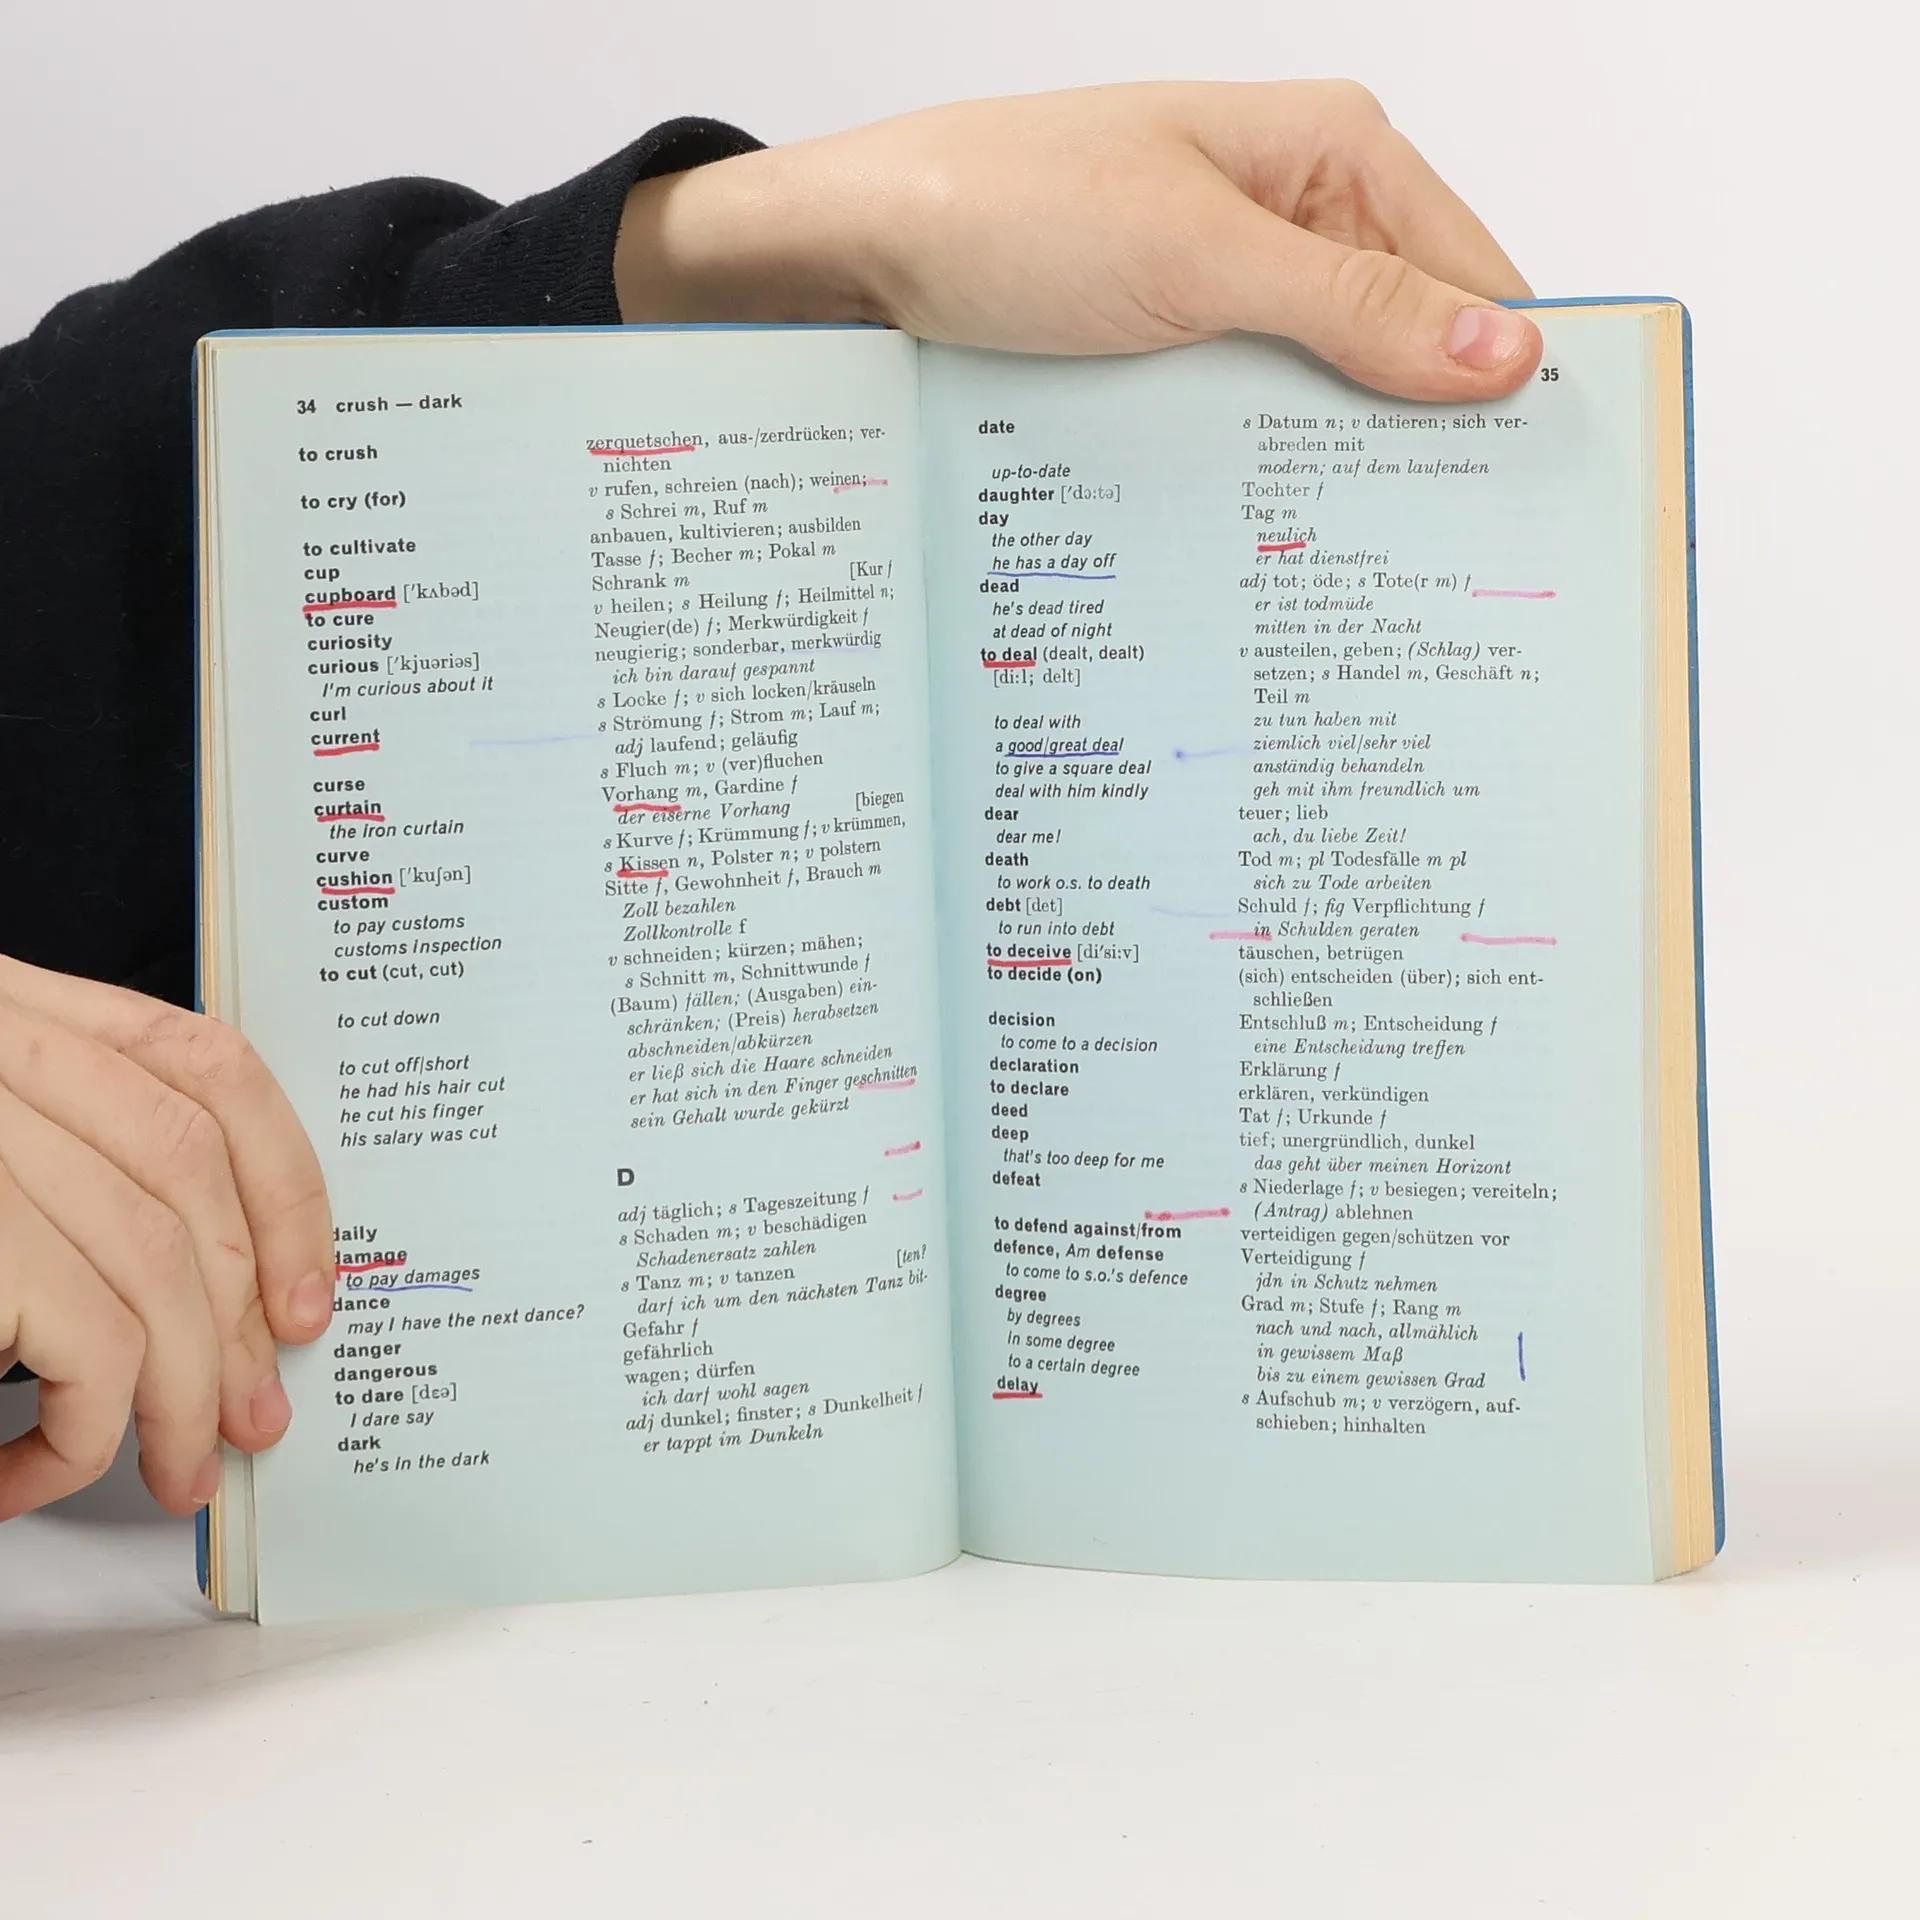 34 crush — dark
to crush zerquetschen, aus-/zerdrücken; ver-
nichten
to cry (for) v rufen, schreien (nach); weinen;
s Schrei m, Ruf m
to cultivate anbauen, kultivieren; ausbilden
cup Tasse f; Becher m; Pokal m
cupboard ['kʌbəd] Schrank m [Kur f
to cure v heilen; s Heilung f; Heilmittel n;
curiosity Neugier(de) f; Merkwürdigkeit f
curious ['kjuəriəs] neugierig; sonderbar, merkwürdig
I'm curious about it ich bin darauf gespannt
curl s Locke f; v sich locken/kräuseln
current s Strömung f; Strom m; Lauf m;
adj laufend; geläufig
curse s Fluch m; v (ver)fluchen
curtain Vorhang m, Gardine f
the iron curtain der eiserne Vorhang [biegen
curve s Kurve f; Krümmung f; v krümmen,
cushion ['kuʃən] s Kissen n, Polster n; v polstern
custom Sitte f, Gewohnheit f, Brauch m
to pay customs Zoll bezahlen
customs inspection Zollkontrolle f
to cut (cut, cut) v schneiden; kürzen; mähen;
s Schnitt m, Schnittwunde f
to cut down (Baum) fällen; (Ausgaben) ein-
schränken; (Preis) herabsetzen
to cut off/short abschneiden/abkürzen
he had his hair cut er ließ sich die Haare schneiden
he cut his finger er hat sich in den Finger geschnitten
his salary was cut sein Gehalt wurde gekürzt
D
daily adj täglich; s Tageszeitung f
damage s Schaden m; v beschädigen
to pay damages Schadenersatz zahlen
dance s Tanz m; v tanzen [ten?
may I have the next dance? darf ich um den nächsten Tanz bit-
danger Gefahr f
dangerous gefährlich
to dare [dɛə] wagen; dürfen
I dare say ich darf wohl sagen
dark adj dunkel; finster; s Dunkelheit f
he's in the dark er tappt im Dunkeln
35
date s Datum n; v datieren; sich ver-
abreden mit
up-to-date modern; auf dem laufenden
daughter ['dɔ:tə] Tochter f
day Tag m
the other day neulich
he has a day off er hat dienstfrei
dead adj tot; öde; s Tote(r m) f
he's dead tired er ist todmüde
at dead of night mitten in der Nacht
to deal (dealt, dealt) v austeilen, geben; (Schlag) ver-
[di:l; delt] setzen; s Handel m, Geschäft n;
Teil m
to deal with zu tun haben mit
a good/great deal ziemlich viel/sehr viel
to give a square deal anständig behandeln
deal with him kindly geh mit ihm freundlich um
dear teuer; lieb
dear me! ach, du liebe Zeit!
death Tod m; pl Todesfälle m pl
to work o.s. to death sich zu Tode arbeiten
debt [det] Schuld f; fig Verpflichtung f
to run into debt in Schulden geraten
to deceive [di'si:v] täuschen, betrügen
to decide (on) (sich) entscheiden (über); sich ent-
schließen
decision Entschluß m; Entscheidung f
to come to a decision eine Entscheidung treffen
declaration Erklärung f
to declare erklären, verkündigen
deed Tat f; Urkunde f
deep tief; unergründlich, dunkel
that's too deep for me das geht über meinen Horizont
defeat s Niederlage f; v besiegen; vereiteln;
(Antrag) ablehnen
to defend against/from verteidigen gegen/schützen vor
defence, Am defense Verteidigung f
to come to s.o.'s defence jdn in Schutz nehmen
degree Grad m; Stufe f; Rang m
by degrees nach und nach, allmählich
in some degree in gewissem Maß
to a certain degree bis zu einem gewissen Grad
delay s Aufschub m; v verzögern, auf-
schieben; hinhalten